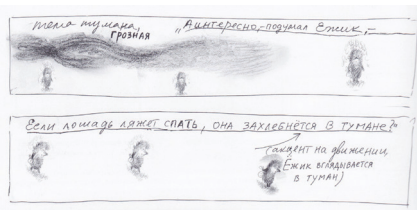 тема тумана,
ГРОЗНАЯ
„А интересно,– подумал Ежик,–
Если лошадь ляжет СПАТЬ, ОНА ЗАХЛЕБНЁТСЯ В ТУМАНЕ?"
(акцент на движении
Ёжик ВГЛЯДЫВАЕТСЯ
В ТУМАН)